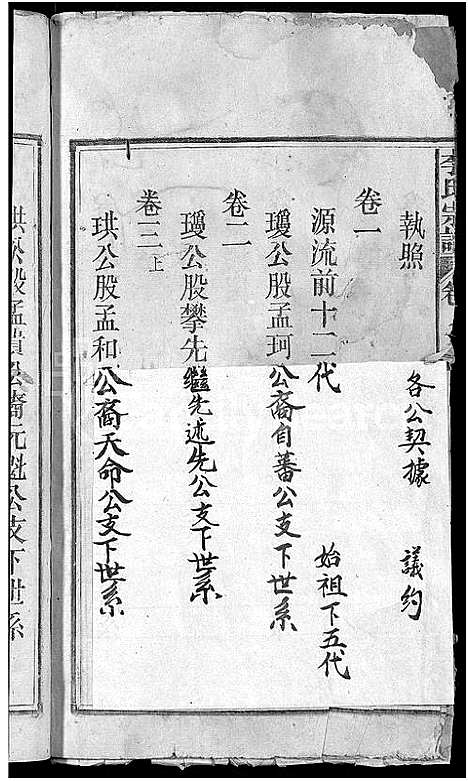 李氏宗譜卷
執照 各公契據 議約
卷一
源流前十二代 始祖下五代
瓊公股孟珂公裔自蕃公支下世系
卷二
瓊公股攀先繼先述先公支下世系
卷三上
珙公股孟和公裔天命公支下世系
珙公股孟潰公裔元魁公支下世系